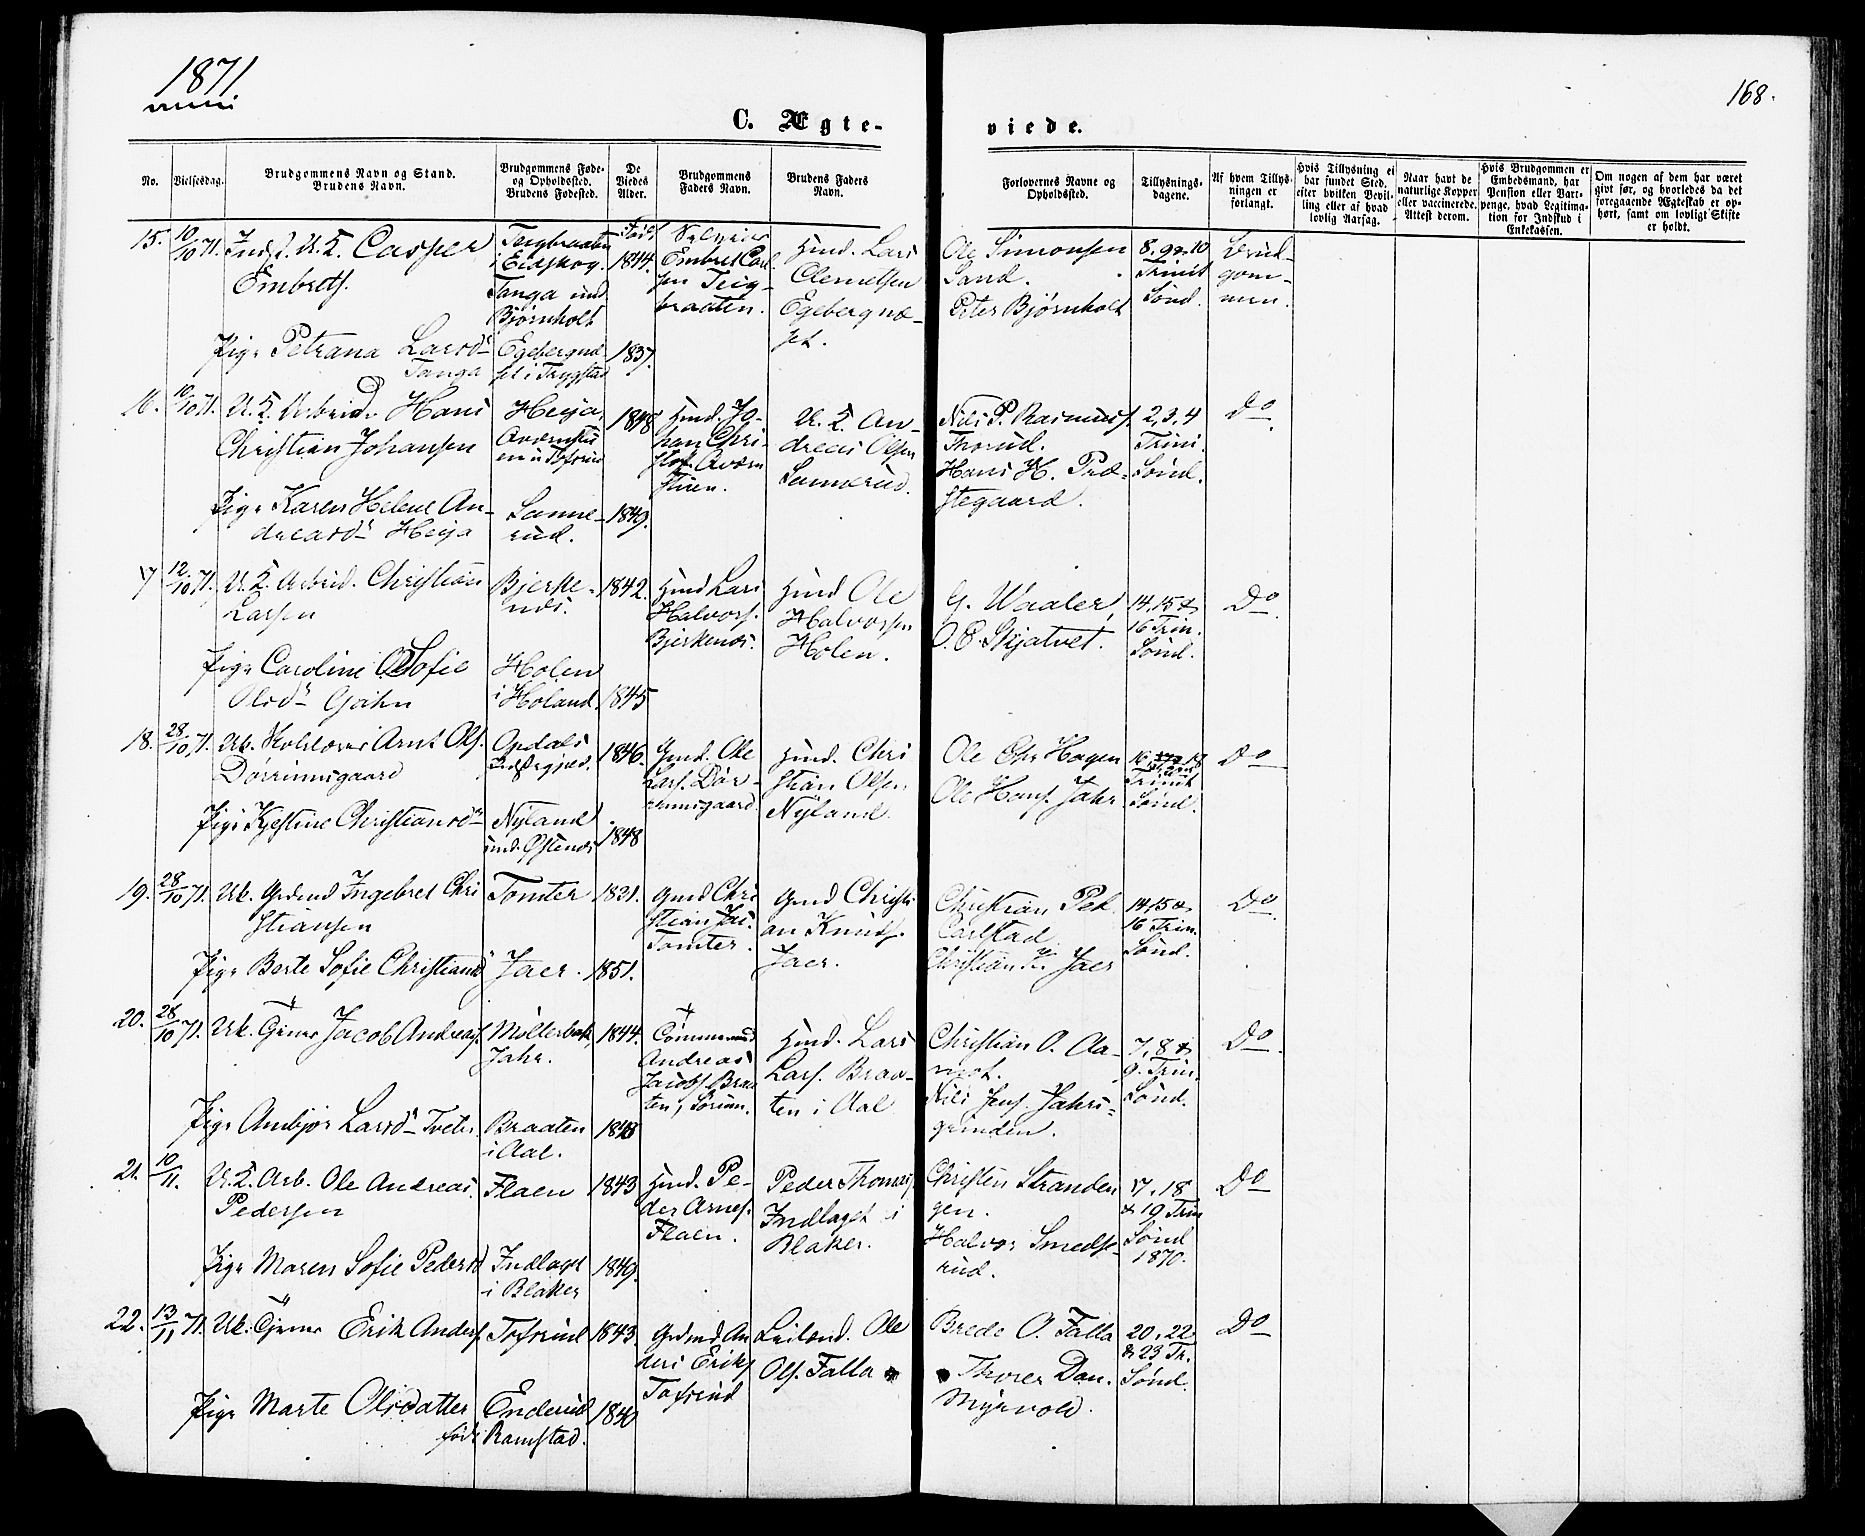 1871
168.
C. Ægte-
viede.
No.
Vielsesdag.
Brudgommens Navn og Stand.
Brudens Navn.
Brudgommens Føde-
og Opholdsted.
Brudens Fødested.
De
Viedes
Alder.
Brudgommens
Faders Navn.
Brudens Faders
Navn.
Forlovernes Navne og
Opholdssted.
Tillysnings-
dagene.
Af hvem Tillys-
ningen er
forlangt.
Hvis Tillysning ei
har fundet Sted,
efter hvilken Bevil-
ling eller af hvad
lovlig Aarsag.
Naar havt de
naturlige Kopper
eller vaccinerede.
Attest derom.
Hvis Brudgommen er
Embedsmand, har
Pension eller Vart-
penge, hvad Legitima-
tion for Indskud i
Enkekassen.
Om nogen af dem har været
givt før, og hvorledes da det
foregaaende Ægteskab er op-
hørt, samt om lovligt Skifte
er holdt.
15. 10/10 71. U. K. Casper
Embrets.
Teigbraaten
i Eidskog.
Tanga und.
Bjørnholt
Født
1844.
Selveier
Embret Carl
sen Teig-
braaten.
Husd. Lars
Clemetsen
Egebergnæ-
set.
Ole Simonsen
Sand.
Peter Bjørnholt
8. 9 & 10
Trinit
Sønd.
Brud-
gom-
men.
Pige Petrana Larsd
Tanga
Egebergnæ-
set i Trygstad
1837.
16. 10/10 71. U. K. Arbeid. Hans
Christian Johansen
Heija,
1848
Husd. Jo-
han Chri-
stof.
U. K. An-
dreas Olsen
Sannerud.
Nils P. Rasmuss.
Thorud.
Hans H. Præ-
stegaard.
2, 3, 4
Trini.
Sønd.
Do
Pige Karen Helene An-
dreasd Heija
Sanne-
rud.
1849.
17 12/10 71. U. K. Arbeid. Christian
Larsen
Bjerke-
næs.
1842.
Husd Lars
Halvors.
Bjerkenæs.
Husd Ole
Halvorsen
Holen.
G. Waaler,
O. E. Skjatvet.
14, 15 &
16 Trin.
Sønd.
Do
Pige Caroline Sofie
Olsd
Holen
i Høland.
1845
18. 28/10 71. Uk. Arnt Ols.
Dørrimsgaard
1846.
Gmd. Ole
Lars. Dør-
rimsgaard
Husd. Chri
stian Olsen
Nyland.
Ole Chr Hagen
Ole Hans. Jahr
Trinit
Sønd.
Do
Pige Kjestine Christiansd
Nyland
und. Østenæs
1848
19. 28/10 71. Uk. Grdmd Ingebret Chri
stiansen
Tomter
1821.
Gmd Chri
stian
Tomter.
Gmd Christi
an Knuds.
Jaer.
Christian Pet.
Carlstad
Christian Jaer
14, 15 &
16 Trin.
Sønd.
Do
Pige Berte Sofie Christiansd
Jaer.
1851.
20. 28/10 71. Uk. Jacob Andreas.
Møllerbak,
Jahr.
1844.
Andreas
Jacobs. Braa
ten, Sørum.
Husd. Lars
Lars. Braa-
ten i Aal
Christian O. Aa-
mot.
Nils Jens. Jahrs-
grinden.
7, 8 &
9. Trin.
Sønd.
Do
Pige Ambjør Larsd Tveter
Braaten
i Aal.
1843
21. 10/11. U. K. Arb. Ole Andreas
Pedersen
Flaen
1843
Husd. Pe-
der Arnes.
Flaen.
Peder Thomas
Indlaget i
Blaker.
Christen Stranden
gen.
Halvor Smedse-
rud.
17, 18
& 19 Trin
Sønd
1870.
Do
Pige Maren Sofie Pedersd
Indlaget
i Blaker
1849.
22. 13/11 71. Uk. Erik Anders.
Tofsrud
1843.
Grdmd An
ders Eriks
Tofsrud
Leiland. Ole
Ols. Falla
Brede O. Falla
Thorer Dan.
Myrvold.
20, 22
& 23 Tr.
Sønd.
Do
Pige Marte Olsdatter
Enderud
født Ramstad.
1840